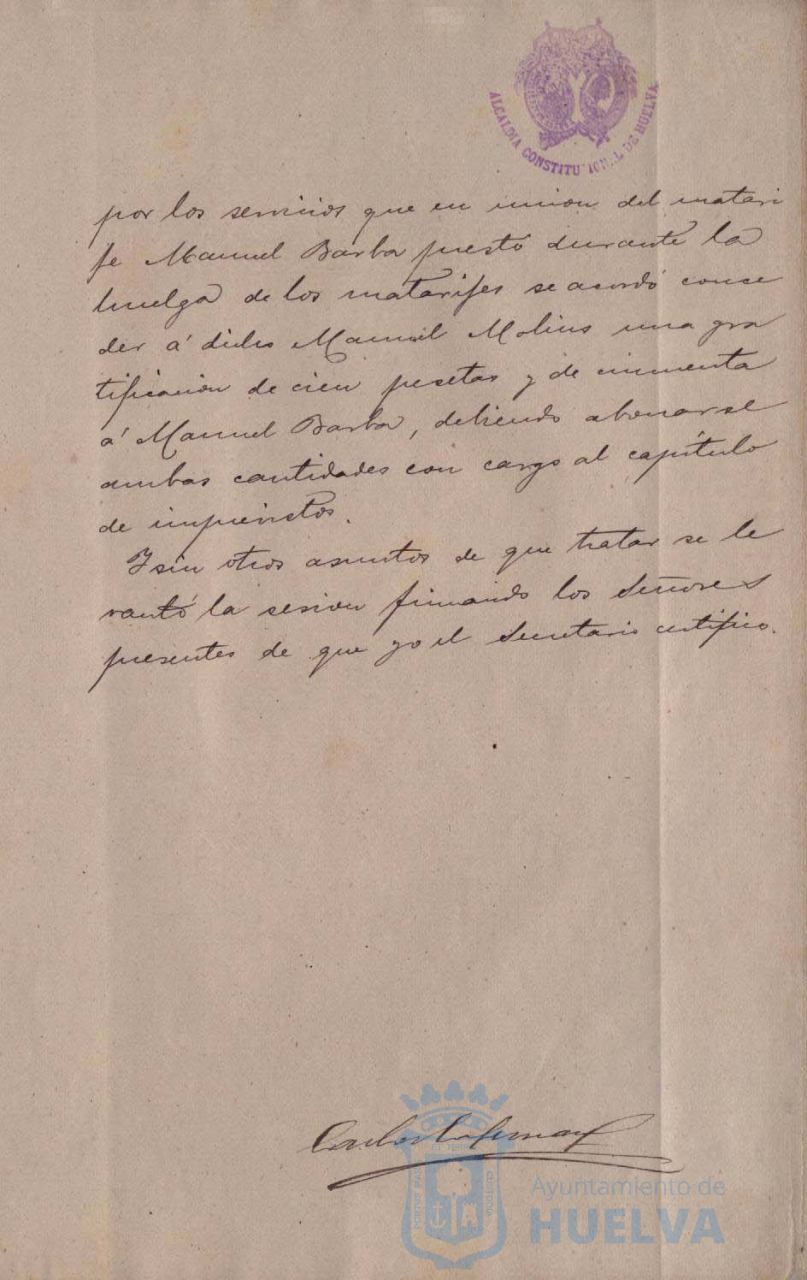 ALCALDIA CONSTITUCIONAL DE HUELVA
por los servicios que en union del matari
fe Manuel Barba prestó durante la
huelga de los matarifes se acordó conce
der á dicho Manuel Molins una gra
tificacion de cien pesetas y de cincuenta
á Manuel Barba, debiendo abonarse
ambas cantidades con cargo al capítulo
de imprevistos.
Y sin otros asuntos de que tratar se le
vantó la sesion firmando los Señores
presentes de que yo el Secretario certifico.
Ayuntamiento de
HUELVA